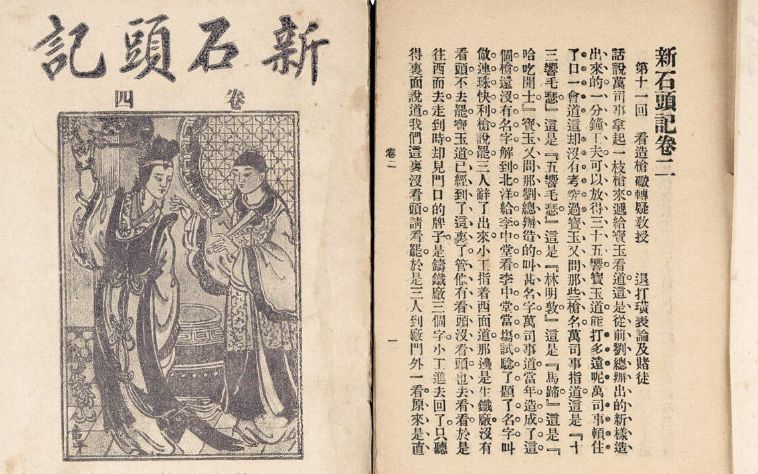 新石頭記
卷四
新石頭記卷二
第十一回　看造槍礮轉疑教授　退打璜表論及賭徒
話說萬司事拿起一枝槍來遞給寶玉看道這是從前劉總辦出的新樣造
出來的一分鐘工夫可以放得三十五響寶玉道能打多遠呢萬司事頓住
了口一會道這却沒有考究過寶玉又問那些槍名萬司事指道這是『十
三響毛瑟』這是『五響毛瑟』這是『林明敦』這是『馬蹄』這是『
哈吃開士』寶玉又問那劉總辦造的叫甚名字萬司事道當年造成了這
個槍還沒有名字解到北洋給李中堂看李中堂當塲試驗了題了名字叫
做連珠快利槍說罷三人辭了出來小工指着西面道那邊是生鐵廠沒有
看頭不去罷寶玉道已經到了這裏了管他有看頭沒看頭也去看看於是
往西面去走到時却見門口的牌子是鑄鐵廠三個字小工進去回了只聽
得裏面說道我們這裏沒看頭請看罷於是三人到廠門外一看原來是直
卷二　一